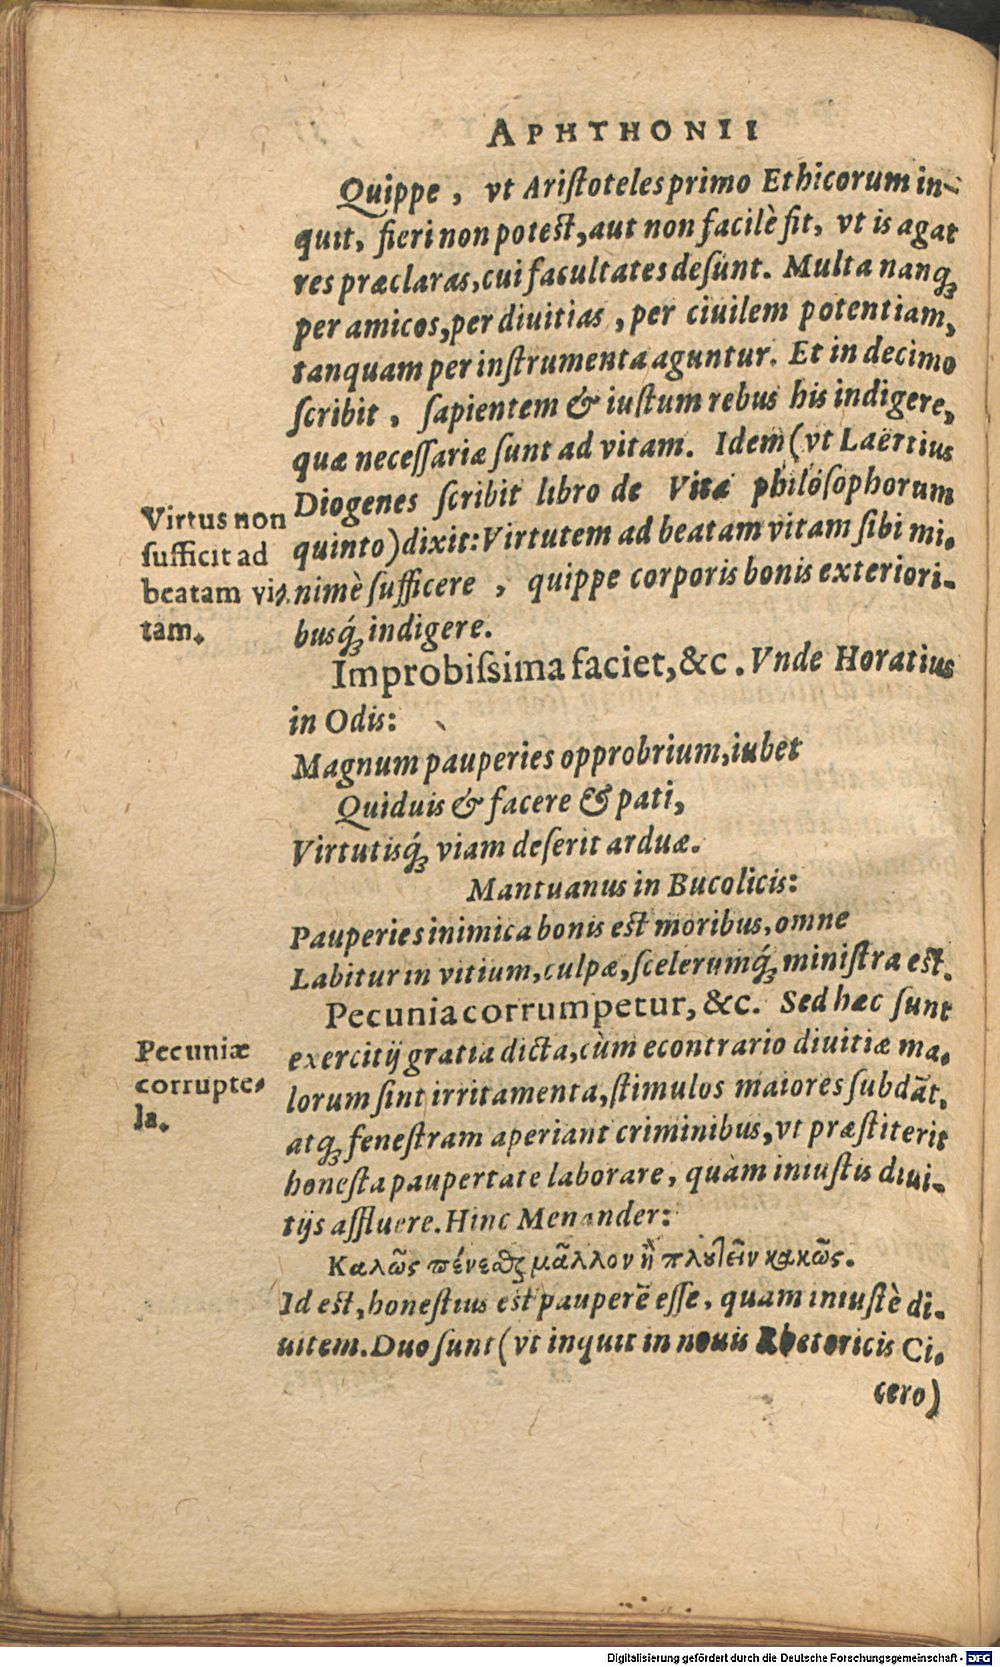 APHTHONII
Quippe, vt Aristoteles primo Ethicorum in-
quit, fieri non potest, aut non facilè fit, vt is agat
res præclaras, cui facultates desunt. Multa nanq́;
per amicos, per diuitias, per ciuilem potentiam,
tanquam per instrumenta aguntur. Et in decimo
scribit, sapientem & iustum rebus his indigere,
quæ necessariæ sunt ad vitam. Idem (vt Laërtius
Diogenes scribit libro de Vita philosophorum
quinto) dixit: Virtutem ad beatam vitam sibi mi-
nimè sufficere, quippe corporis bonis exteriori-
busq́; indigere.
Virtus non
sufficit ad
beatam vi-
tam.
Improbissima faciet, &c. Vnde Horatius
in Odis:
Magnum pauperies opprobrium, iubet
Quiduis & facere & pati,
Virtutisq́; viam deserit arduæ.
Mantuanus in Bucolicis:
Pauperies inimica bonis est moribus, omne
Labitur in vitium, culpæ, scelerumq́; ministra est.
Pecunia corrumpetur, &c. Sed hæc sunt
exercitij gratia dicta, cùm econtrario diuitiæ ma-
lorum sint irritamenta, stimulos maiores subdãt,
atq; fenestram aperiant criminibus, vt præstiterit
honesta paupertate laborare, quàm iniustis diui-
tijs affluere. Hinc Menander:
Pecuniæ
corrupte-
la.
Καλῶς πένεσθαι μᾶλλον ἢ πλουτεῖν κακῶς.
Id est, honestius est pauperẽ esse, quam iniustè di-
uitem. Duo sunt (vt inquit in nouis Rhetoricis Ci-
cero)
Digitalisierung gefördert durch die Deutsche Forschungsgemeinschaft - DFG